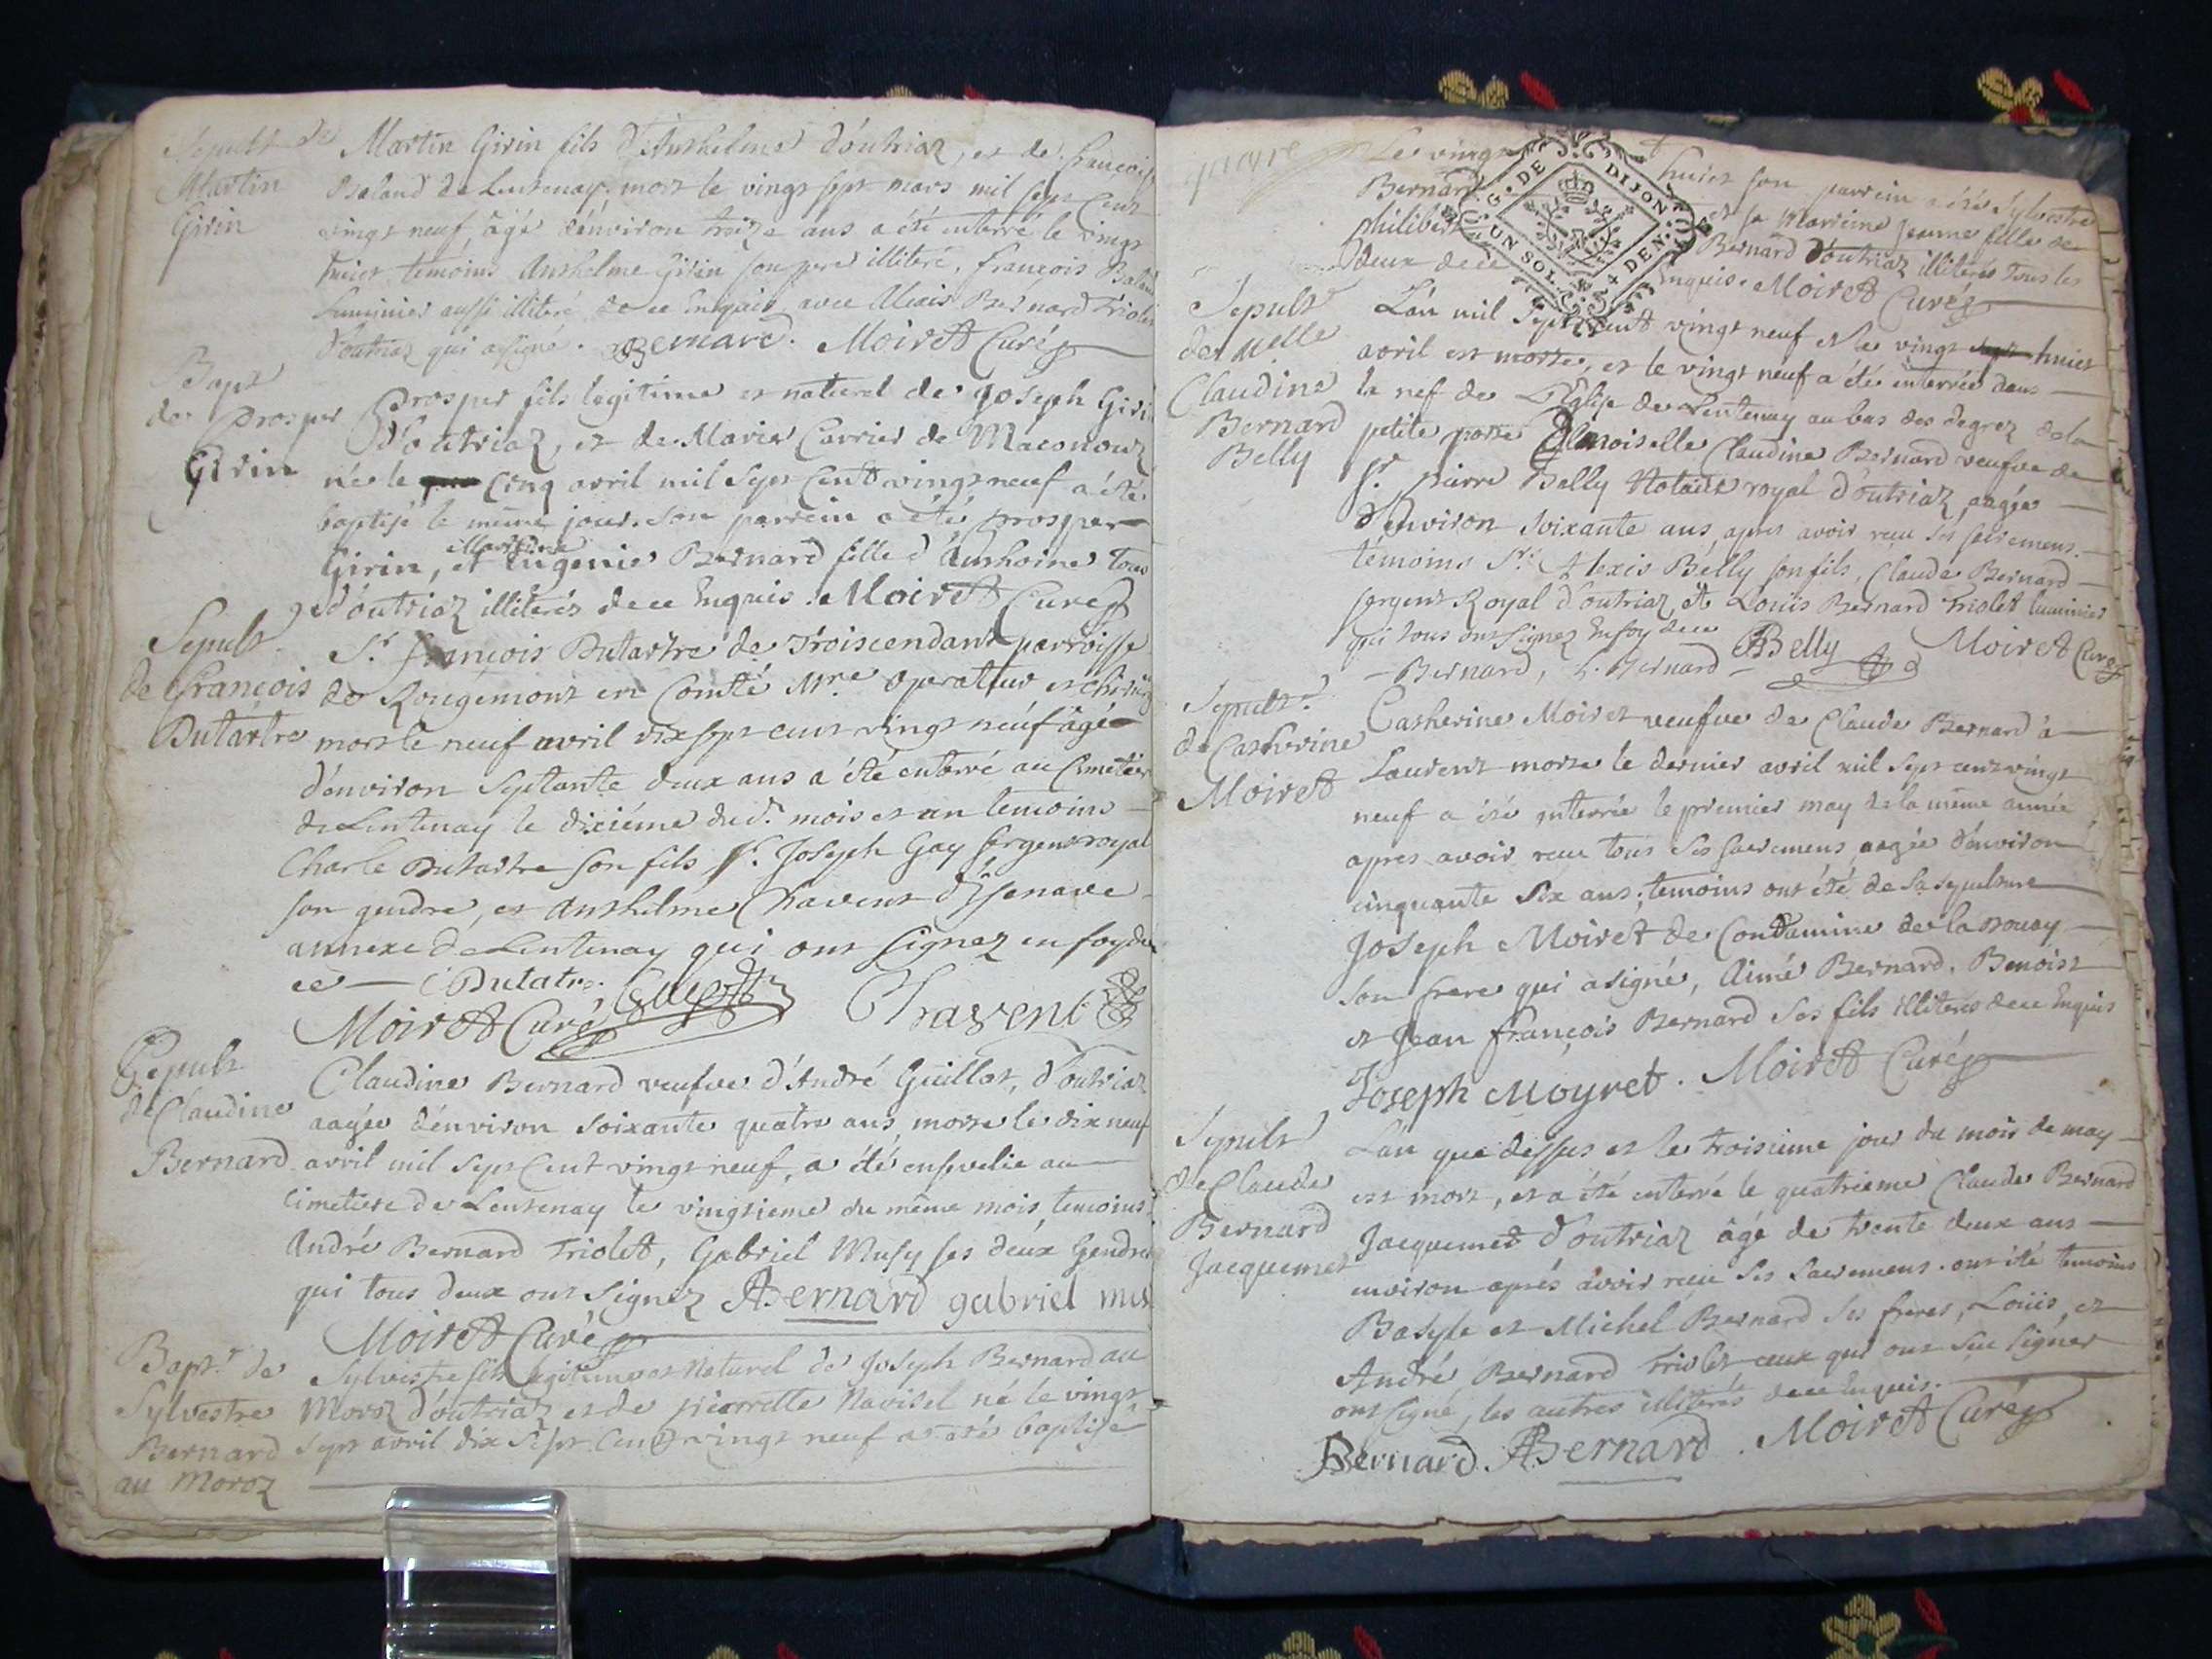 Sepult de
Martin
Girin
Martin Girin fils d'Anthelme d'outriaz, et de francoise
Baland de Lentenay, mort le vingt sept mars mil sept cent
vingt neuf, âgé d'environ treize ans a été enterré le vingt
huict temoins Anthelme Girin son pere illiteré, françois Baland
luminier aussi illiteré de ce Enquis, avec Alexis Bernard Triolet
d'outriaz qui a signé. Bernard. Moiret Curé
Bapt
de Prosper
Girin
Prosper fils legitime et naturel de Joseph Girin
d'outriaz, et de Marie Carrier de Maconod
né le cinq avril mil sept cent vingt neuf a été
baptisé le même jour. son parrein a été prosper
Girin, et Eugenie Bernard fille d'Anthoine tous
d'outriaz illiterés de ce Enquis. Moiret Curé
Sepult.
de François
Dutartre
Sr. françois Dutartre de Troiscendans parroisse
de Rougemont en Comté Mre. operateur et
mort le neuf avril dix sept cent vingt neuf âgé
d'environ septante deux ans a été enterré au Cimetiere
de Lentenay le dixiéme dud. mois et an temoins
Charle Dutartre son fils Sr. Joseph Gay sergent royal
son gendre, et Anthelme Travent d'Issenave
annexe de Lentenay qui ont signez en foy de
ce — C Dutatre. Gay
Moiret Curé Travent
Sepult
de Claudine
Bernard
Claudine Bernard veufve d'André Guillot, d'outriaz
aagée d'environ soixante quatre ans, morte le dix neuf
avril mil sept cent vingt neuf, a été ensevelie au
cimetiere de Lentenay le vingtieme du même mois, temoins
André Bernard Triolet, Gabriel Musy ses deux Gendres
qui tous deux ont signez ABernard gabriel mus
Moiret Curé
Bapt. de
Sylvestre
Bernard
au Moroz
Sylvestre fils legitime et naturel de Joseph Bernard au
Moroz d'outriaz et de pierrette Navisel né le vingt
sept avril dix sept cent vingt neuf a été baptisé
Le vingt huict son parrein a été Sylvestre
Bernard et sa marreine jeanne fille de
philibert Bernard d'outriaz illiterés tous les
deux de ce Enquis. Moiret Curé
G. DE DIJON
UN SOL 4 DEN.
Sepult
de Melle
Claudine
Bernard
Belly
L'an mil sept cent vingt neuf et le vingt huict
avril est morte, et le vingt neuf a été enterrée dans
la nef de L'Eglise de Lentenay au bas des degrez de la
petite porte Demoiselle Claudine Bernard veufve de
Sr. pierre Belly Notaire royal d'outriaz aagée
d'environ soixante ans, apres avoir receu ses sacremens.
témoins Sr. Alexis Belly son fils, Claude Bernard
sergent Royal d'outriaz, et Louis Bernard Triolet luminier
qui tous ont signez En foy de ce Belly Moiret Curé
Bernard, L. Bernard
Sepult.
de Catherine
Moiret
Catherine Moiret veufve de Claude Bernard à
Laurent morte le dernier avril mil sept cent vingt
neuf a été enterrée le premier may de la même année
apres avoir receu tous ses sacremens, aagée d'environ
cinquante six ans; temoins ont été de sa sepulture
Joseph Moiret de Condamine de la
son frere qui a signé, Aimé Bernard, Benoist
et Jean françois Bernard ses fils illiterés de ce Enquis
Joseph Moyret. Moiret Curé
Sepult
de Claude
Bernard
Jacquemet
L'an que dessus et le troisieme jour du mois de may
est mort, et a été enterré le quatrieme Claude Bernard
Jacquemet d'outriaz âgé de trente deux ans
environ aprés avoir receu ses sacremens. ont été temoins
Basyle et Michel Bernard ses freres, Loüis, et
André Bernard Triolet ceux qui ont sceu signer
ont signé, les autres illiterés de ce Enquis.
Bernard. ABernard. Moiret Curé